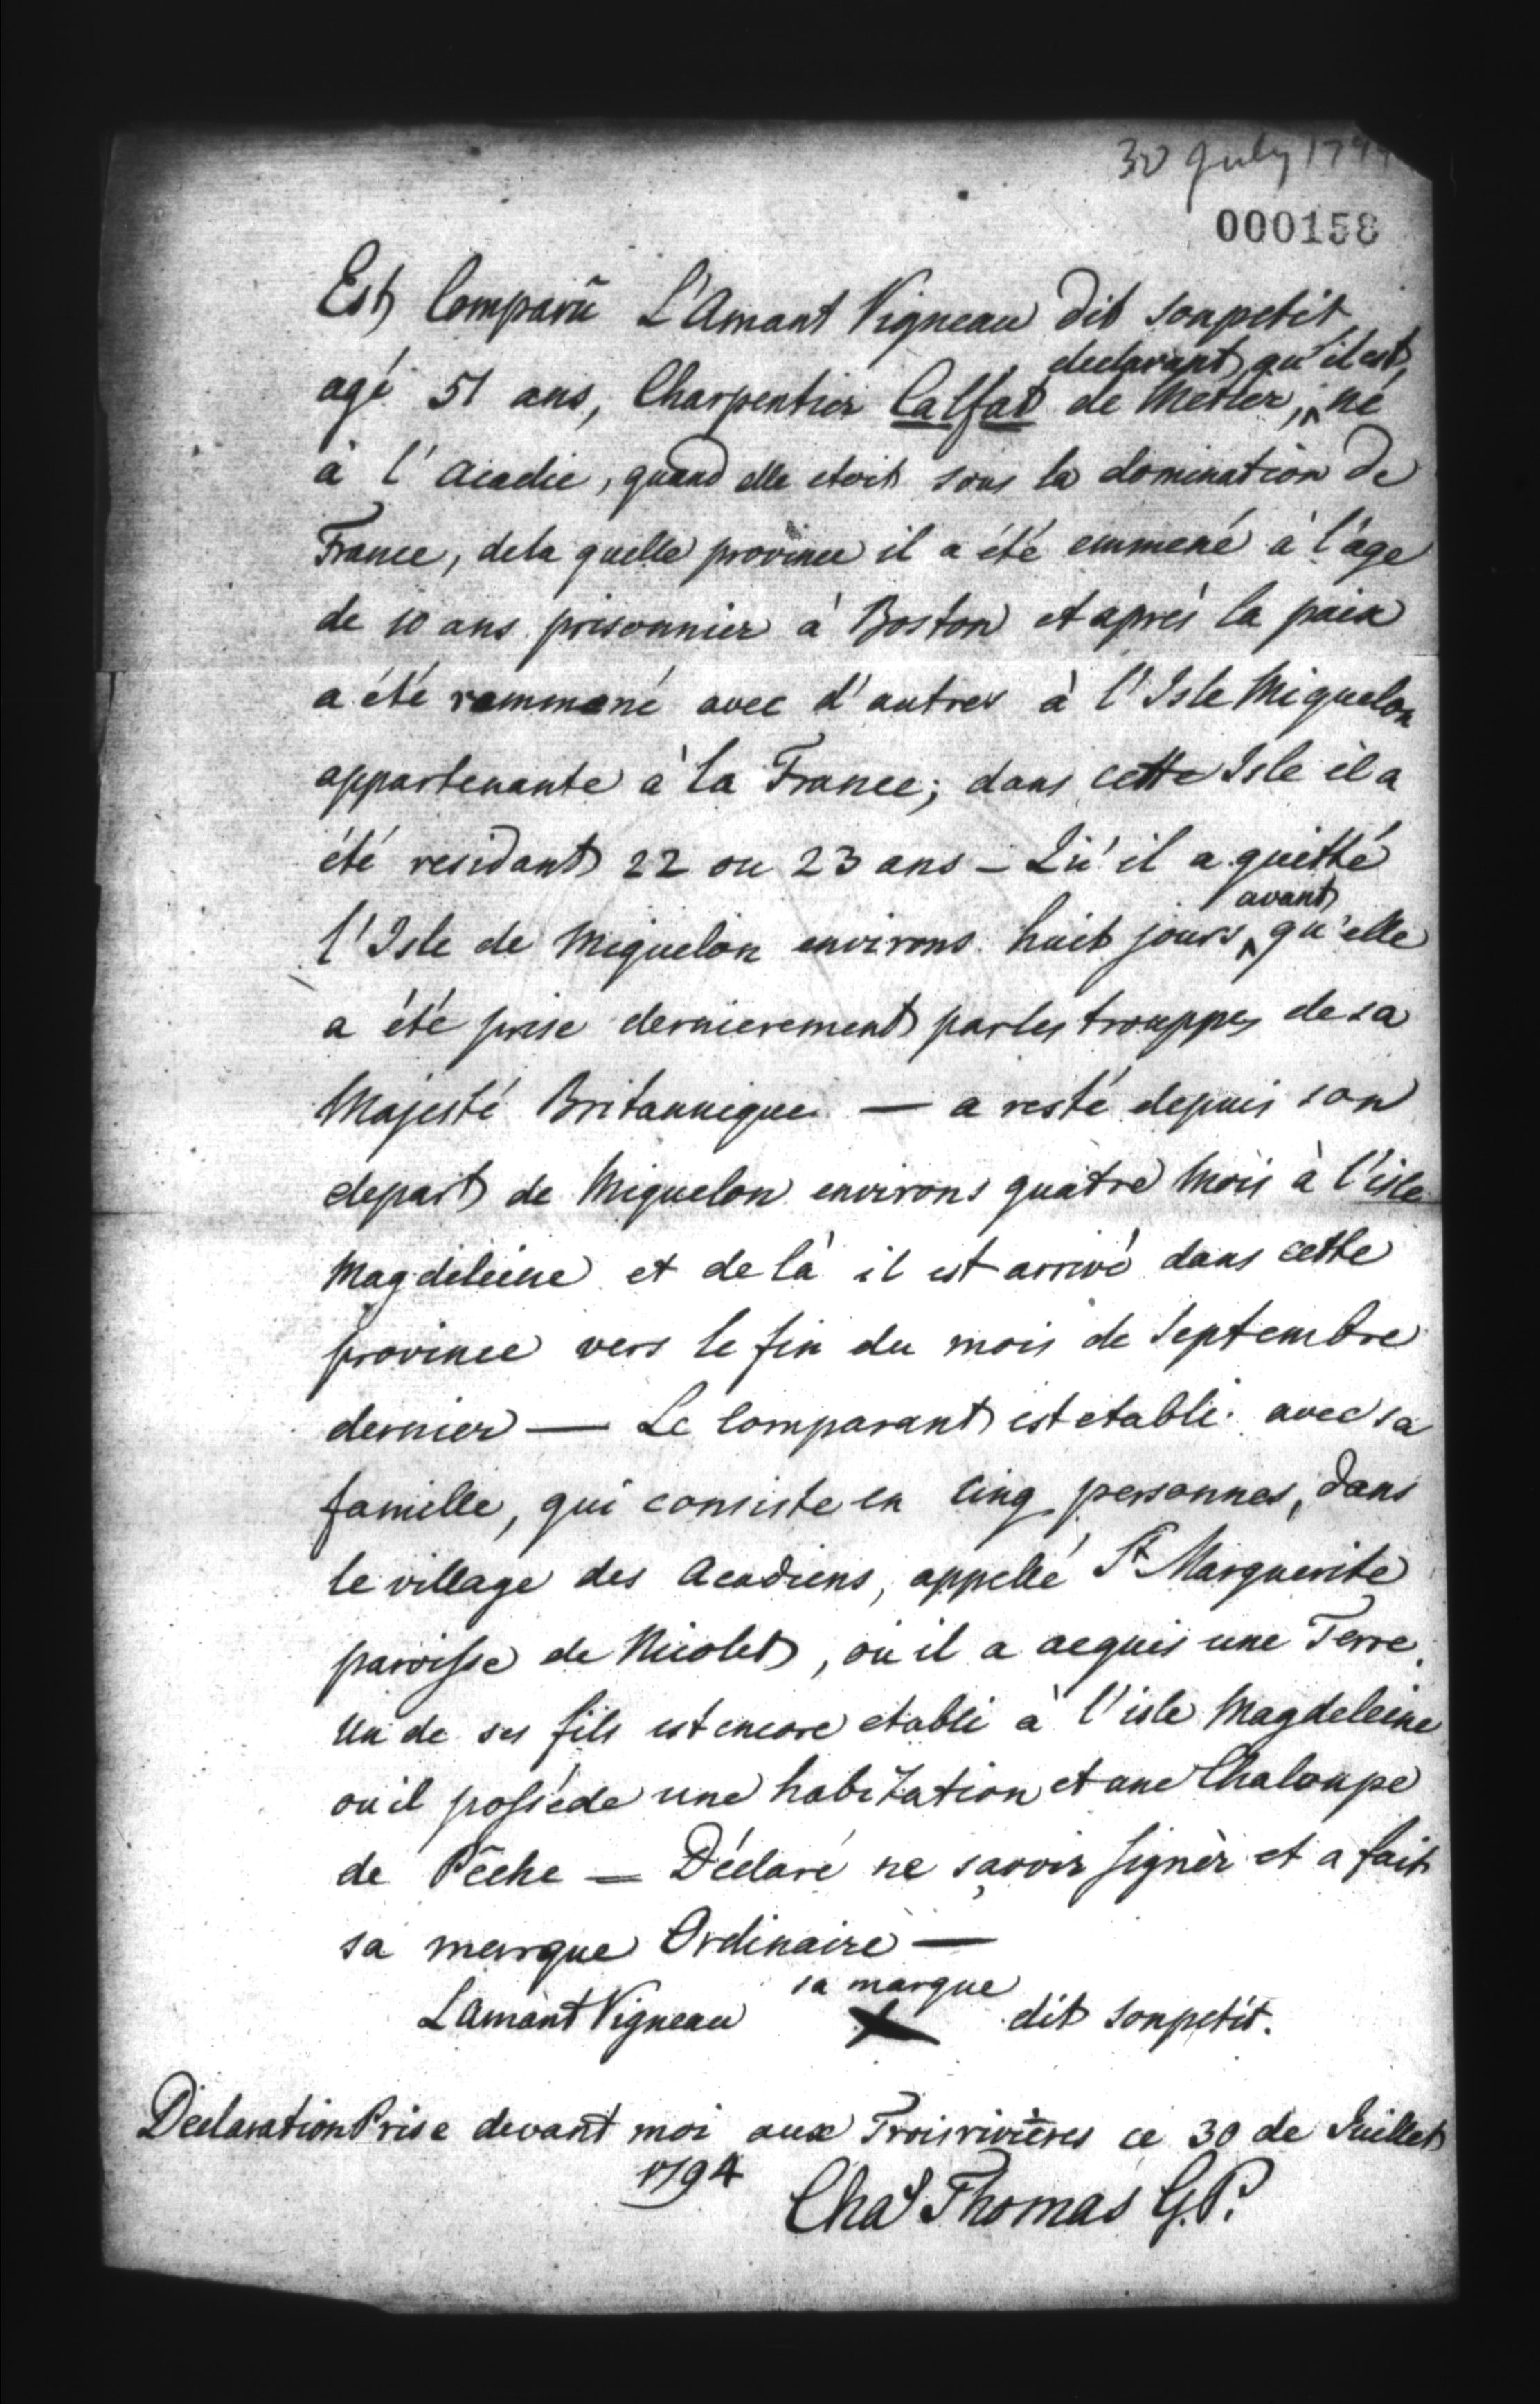 30 July 1794
000158
Est Comparû L'Amant Vigneau dit sonpetit
declarant qu'il est
agé 51 ans, Charpentier Calfat de Metier, ^ né
à l'Acadie, quand elle etoit sous la domination de
France, dela quelle province il a été emmené à l'âge
de 10 ans prisonnier à Boston et aprés la paix
a été rammené avec d'autres à l'Isle Miquelon
appartenante à la France; dans cette Isle il a
été residant 22 ou 23 ans – Qu'il a quitté
avant
l'Isle de Miquelon environs huit jours ^ qu'elle
a été prise dernierement par les trouppes de sa
Majesté Britannique — a resté depuis son
depart de Miquelon environs quatre Mois à l'isle
Magdeleine et de là il est arrivé dans cette
province vers le fin du mois de Septembre
dernier — Le Comparant est etabli avec sa
famille, qui consiste en Cinq personnes, dans
le village des Acadiens, appellé St Marguerite
paroisse de Nicolet, où il a acquis une Terre.
Un de ses fils est encore etabli à l'isle Magdeleine
ou il posséde une habitation et une Chaloupe
de Pêche = Déclaré ne sçavoir signèr et a fait
sa marque Ordinaire —
sa marque
LAmant Vigneau X dit sonpetit.
Declaration Prise devant moi aux Troisrivières ce 30 de Juillet
1794
Chas Thomas G.P.